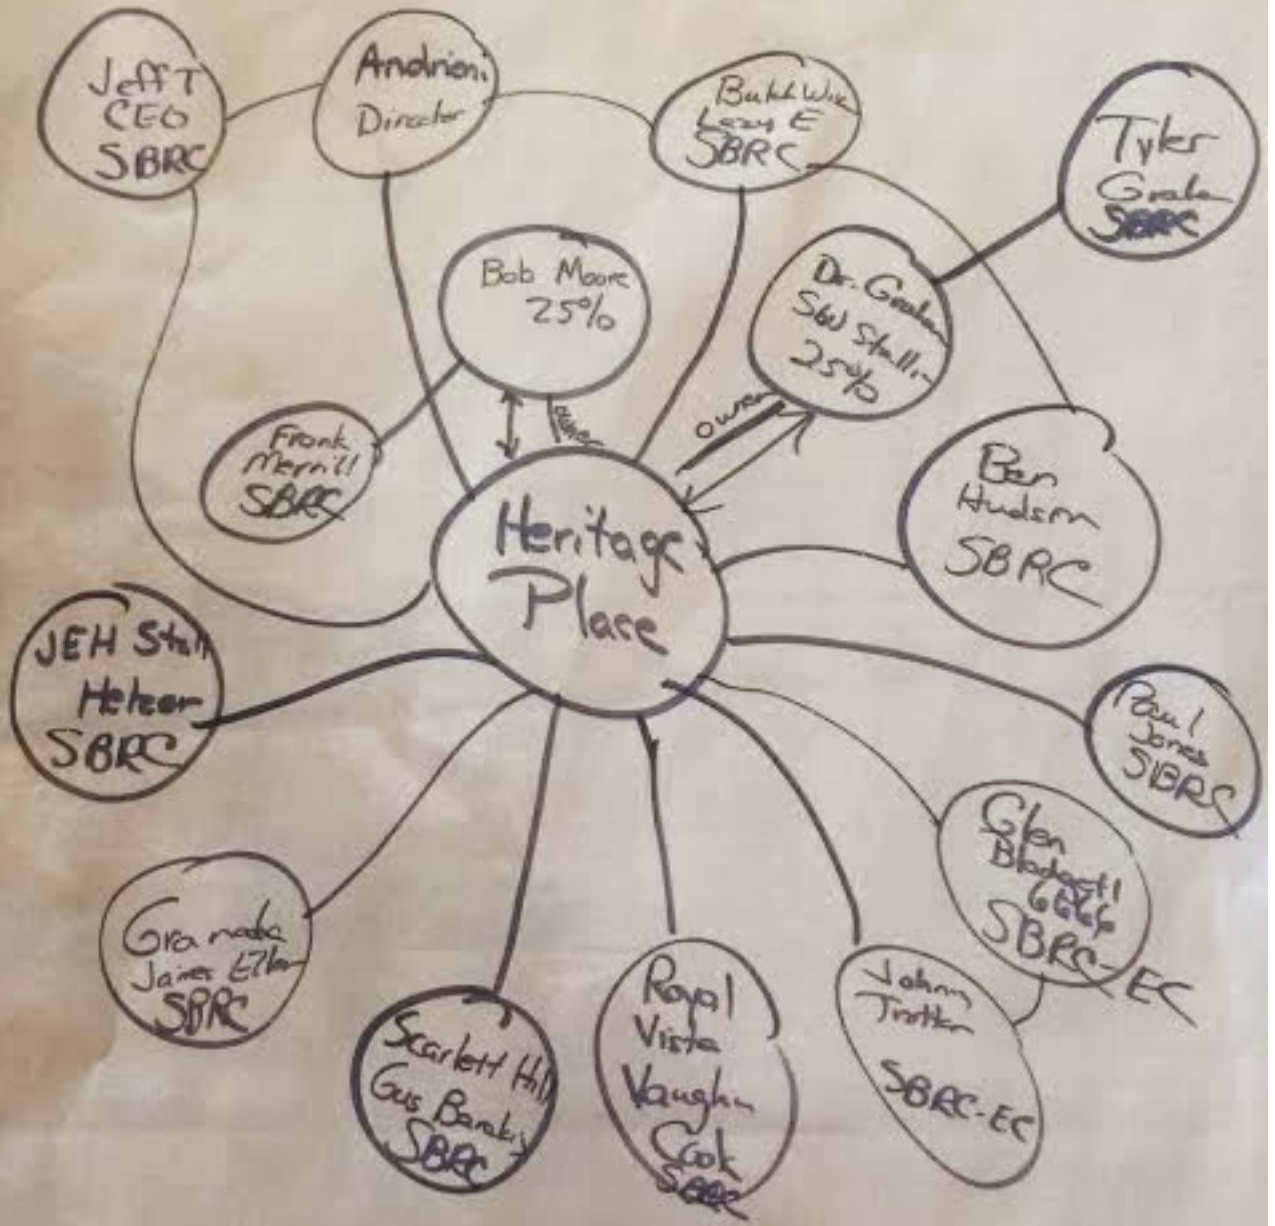 Jeff T
CEO
SBRC
Andrieni
Director
Butch Wise
Lazy E
SBRC
Tyler
Graham
SBRC
Bob Moore
25%
Dr. Graham
S&W Stallin
25%
owner
owner
Frank
Merrill
SBRC
Heritage
Place
Ben
Hudson
SBRC
JEH Stall
Hetzer
SBRC
Paul
Jones
SBRC
Glen
Blodgett
6666
SBRC-EC
Granada
James Eller
SBRC
Scarlett Hill
Gus
SBRC
Royal
Vista
Vaughn
Cook
SBRC
Johnny
Trotter
SBRC-EC